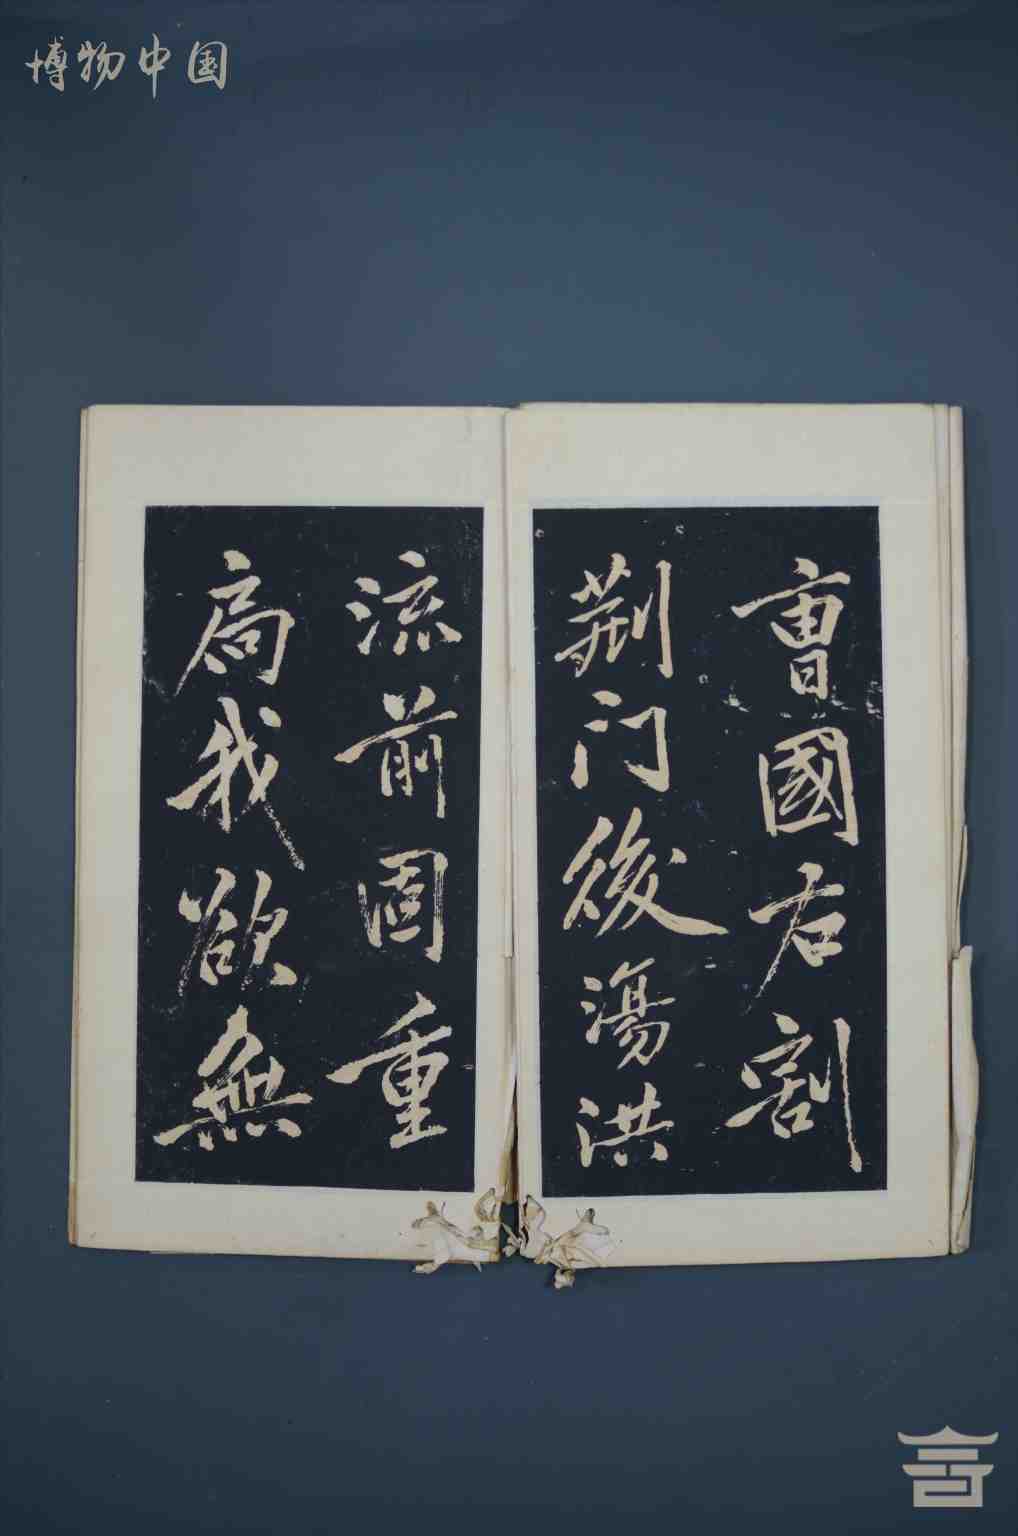 博物中国
曺國右割
荆门後蕩洪
流前固重
扃我欲無